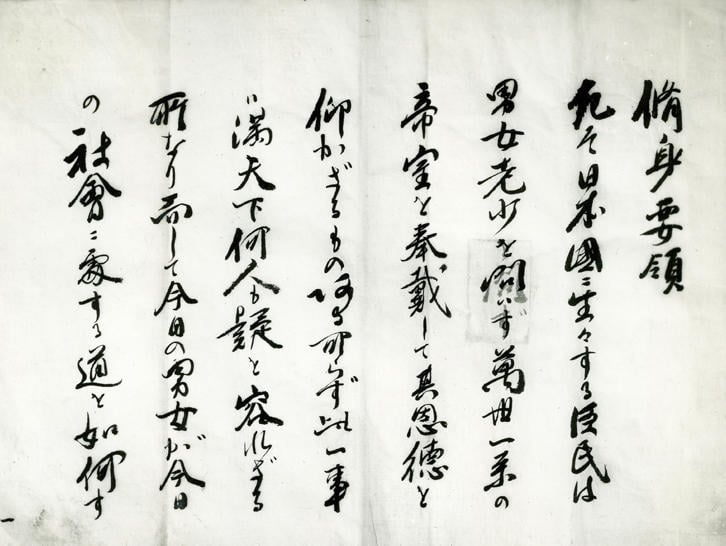 修身要領
凡そ日本國ニ生々する臣民は
男女老少を問はず萬世一系の
帝室を奉戴して其恩徳を
仰かざるものある可らず此一事
は満天下何人も疑を容れざる
所なり而して今日の男女が今日
の社會ニ處する道を如何す